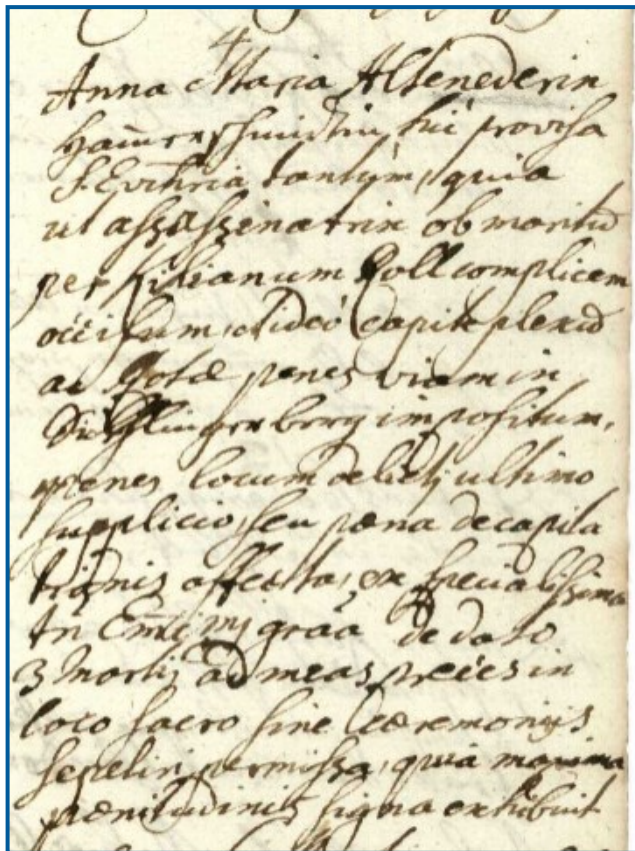 4
Anna Maria Altenederin
Ham̄erschmidin, hic provisa
S. Euchria tantum, quia
ut assassinatrix ob maritũ
per Kilianum Poll complicem
occisum, ideó capite plexũ
ac Rotæ penes viam in
impositum,
penes locum delicti ultimo
supplicio, seu pæna decapita
tionis affecta, ex specialissima
gratia de dato
3 Martij ad meas preces in
loco sacro sine Cæremonijs
sepeliri permissa, quia maxima
pænitudinis signa exhibuit